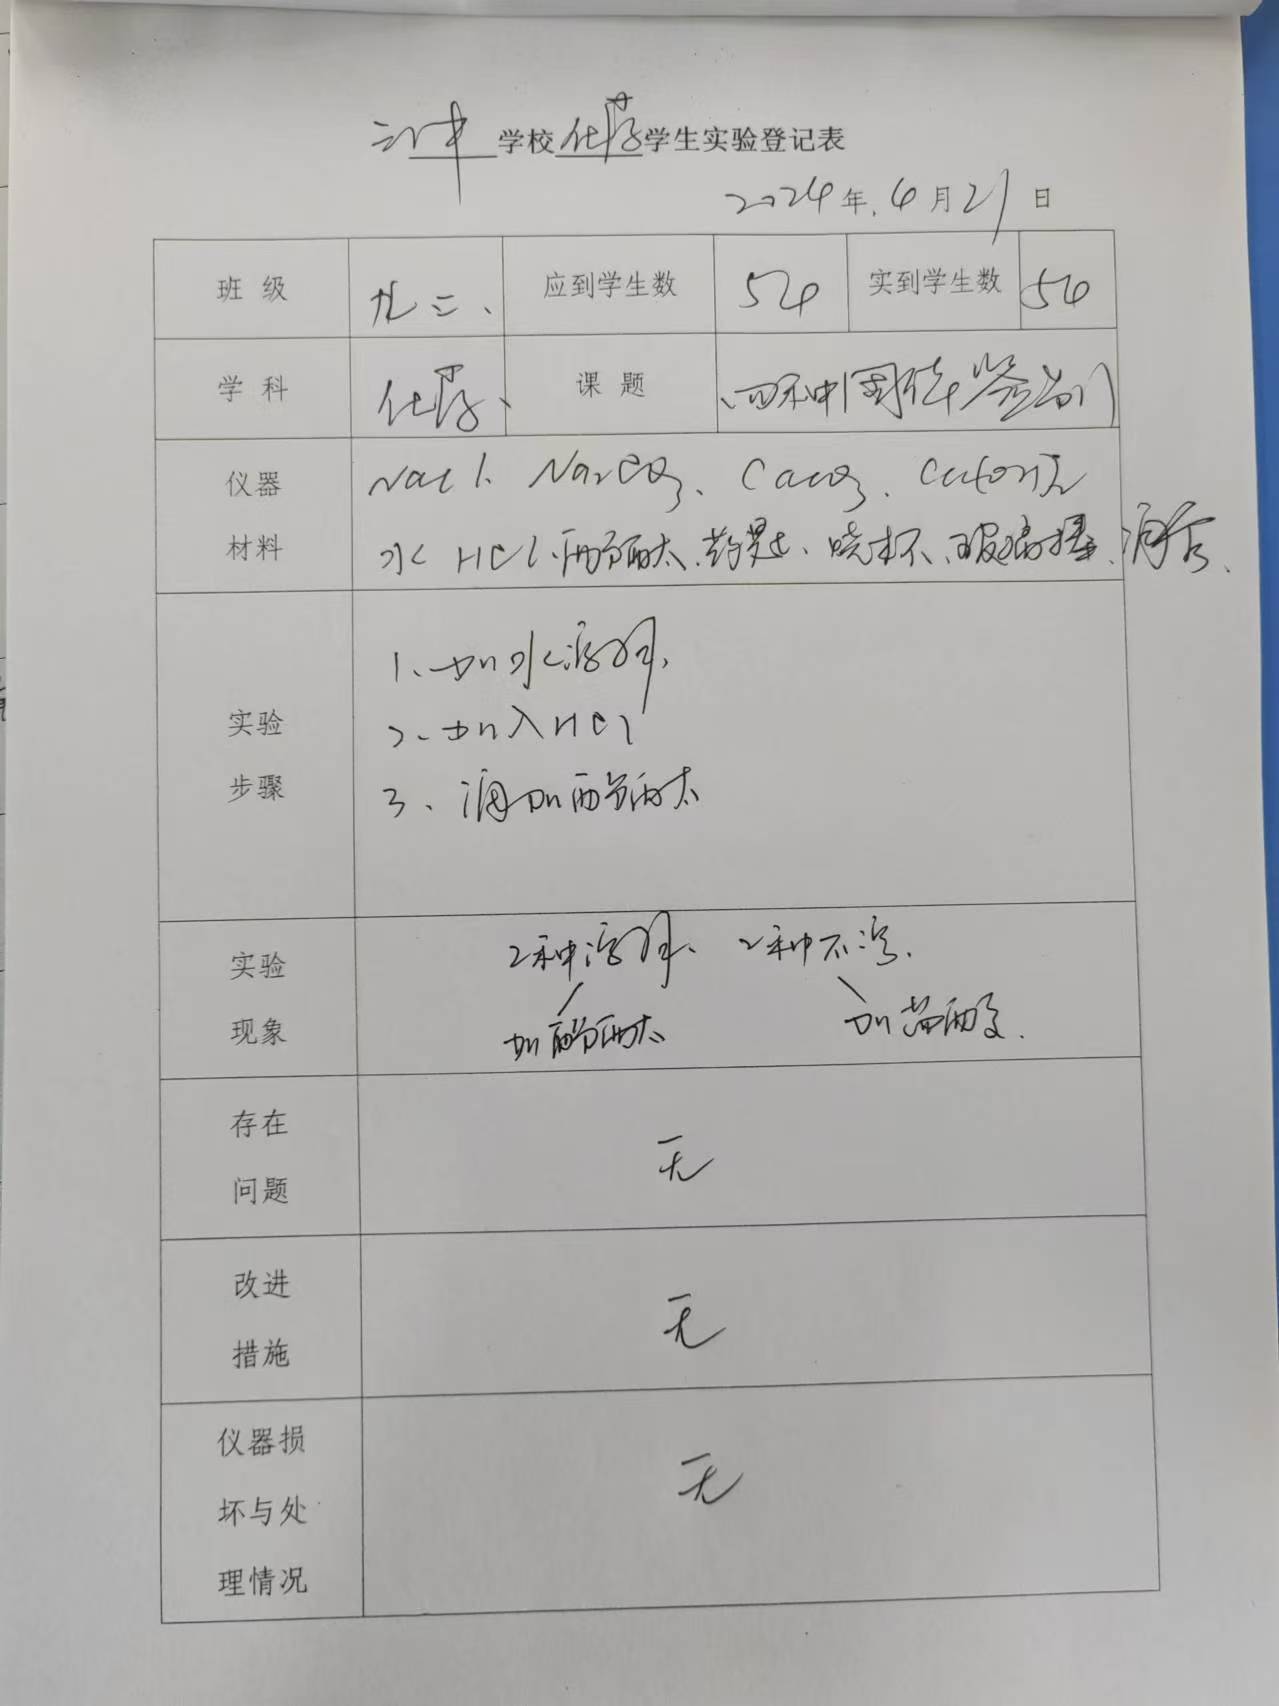 学校化学学生实验登记表
2024年.4月21日
班级 九二、 应到学生数 54 实到学生数 54
学科 化学、 课题 、四种固体鉴别
仪器材料 NaCl、Na2CO3、CaCO3、Ca(OH)2
水 HCl、酚酞、药匙、烧杯、玻璃棒、滴管、
实验步骤
1、加水溶解、
2、加入HCl
3、滴加酚酞
实验现象
2种溶解、2种不溶.
加酚酞 加盐酸.
存在问题 无
改进措施 无
仪器损坏与处理情况 无